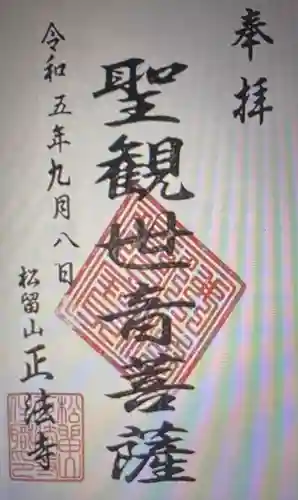 奉拝
聖観世音菩薩
令和五年九月八日
松留山正法寺